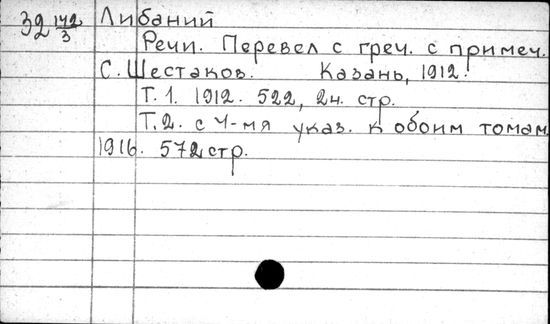 32 142/3 Либаний
Речи. Перевел с греч. с примеч.
С. Шестаков. Казань, 1912.
Т. 1. 1912. 522, 2н. стр.
Т. 2. с 4-мя указ. к обоим томам
1916. 572 стр.